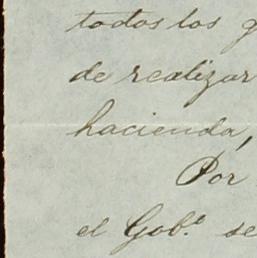 todos los g
de realizar
hacienda,
Por
el Gob.º se